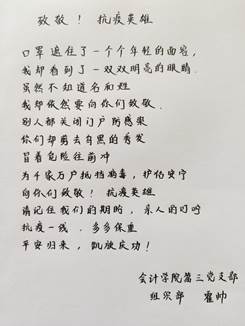 致敬！抗疫英雄
口罩遮住了一个个年轻的面容，
我却看到了一双双明亮的眼睛
虽然不知道名和姓
我却依然要向你们致敬．
别人都关闭门户防感染
你们却剪去乌黑的秀发
冒着危险往前冲
为千家万户抵挡病毒，护佑安宁
向你们致敬！抗疫英雄
请记住我们的期盼，亲人的叮咛
抗疫一线．多多保重
平安归来，凯旋庆功！
会计学院第三党支部
组织部 霍帅